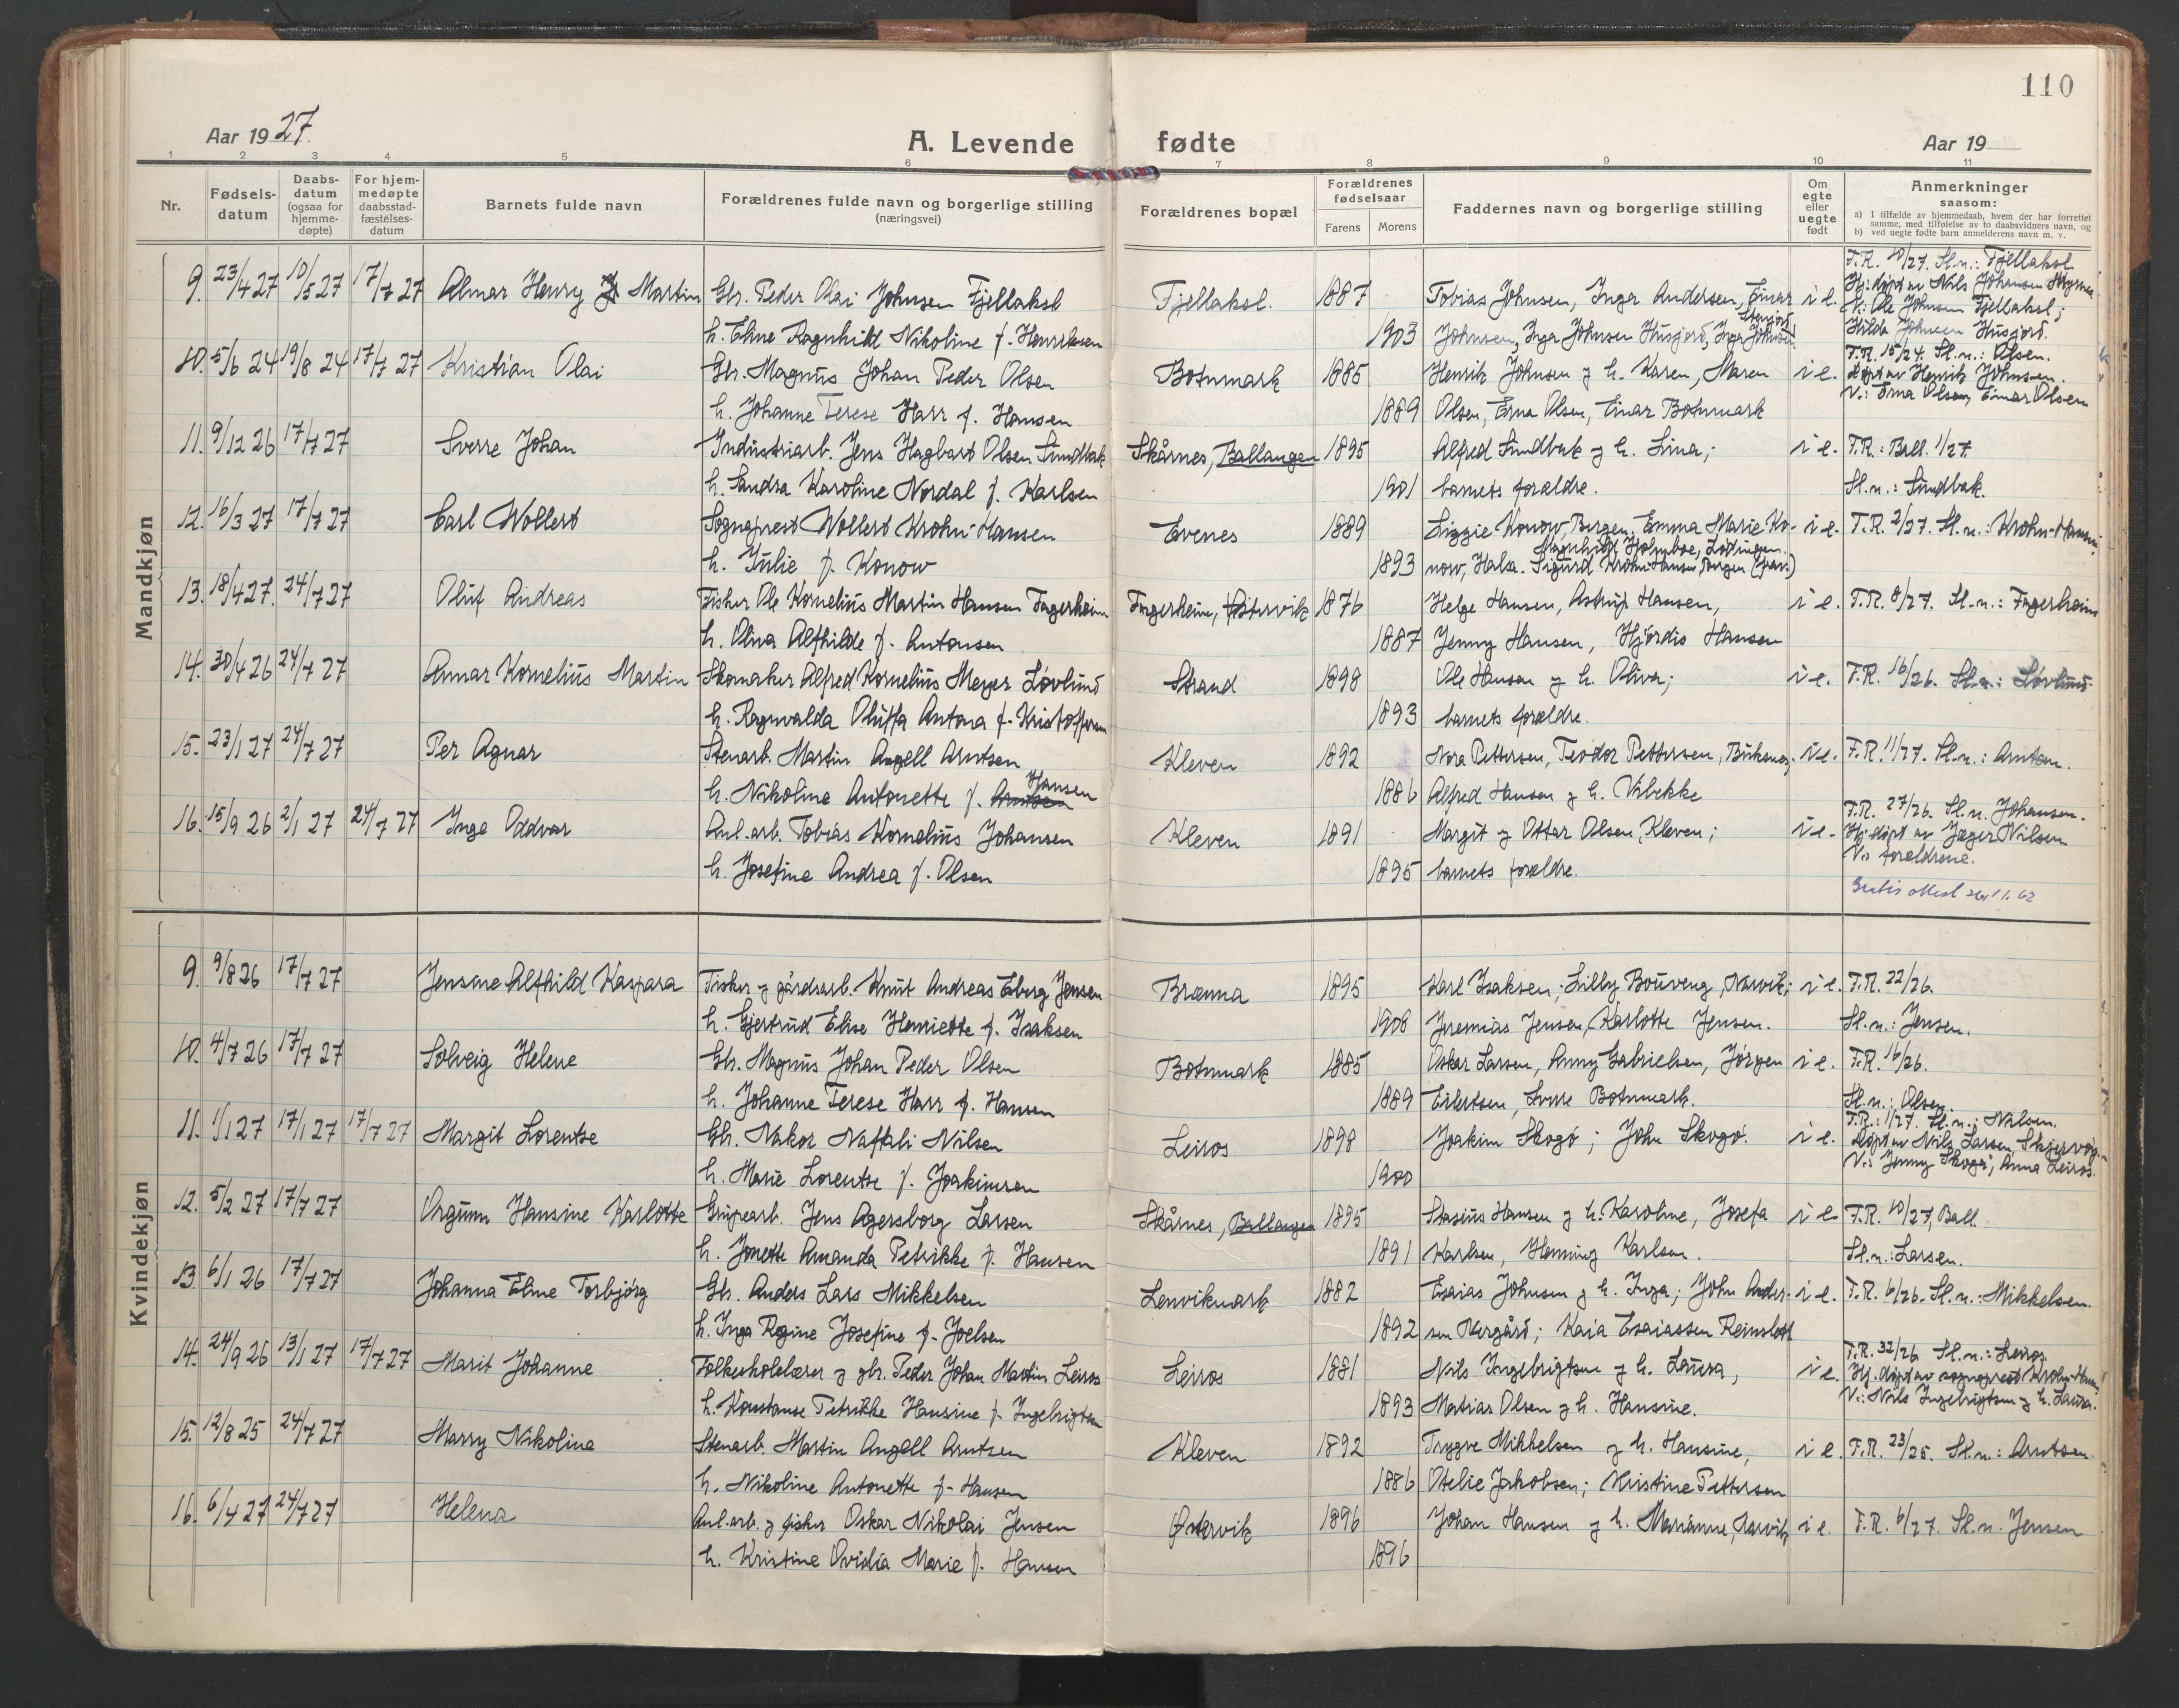 110
Aar 1927.
A. Levende fødte
Aar 19
1 2 3 4 5 6 7 8 9 10 11
Nr.
Fødsels-
datum
Daabs-
datum
(ogsaa for
hjemme-
døpte)
For hjem-
medøpte
daabsstad-
fæstelses-
datum
Barnets fulde navn
Forældrenes fulde navn og borgerlige stilling
(næringsvei)
Forældrenes bopæl
Forældrenes
fødselsaar
Farens Morens
Faddernes navn og borgerlige stilling
Om
egte
eller
uegte
født
Anmerkninger
saasom:
a) I tilfælde av hjemmedaab, hvem der har forrettet
samme, med tilføielse av to daabsvidners navn, og
b) ved uegte fødte barn anmelderens navn m. v.
Mandkjøn
9. 23/4 27 10/5 27 17/7 27 Almar Henry Martin Gbr. Peder Olai Johnsen Fjellaksl Fjellaksl. 1887 Tobias Johnsen, Inger Andersen, Einar i e. F.R. 10/27. Sl.n.: Fjellaksl
Hj.døpt av Nils Johansen
h. Eline Ragnhild Nikoline f. Henriksen 1903 Johnsen, Inga Johnsen Husjord, Inga Johnsen V: Ole Johnsen Fjellaksl;
Hilda Johnsen Husjord.
10. 5/6 24 19/8 24 17/7 27 Kristian Olai Gbr. Magnus Johan Peder Olsen Botnmark 1885 Henrik Johnsen og h. Karen, Maren i e. F.R. 15/24. Sl.n.: Olsen.
Døpt av Henrik Johnsen.
h. Johanne Terese Harr f. Hansen 1889 Olsen, Erna Olsen, Einar Botnmark V.: Erna Olsen, Einar Olsen
11. 9/12 26 17/7 27 Sverre Johan Industriarb. Jens Hagbart Olsen Sundbak Skårnes, Ballangen 1895 Alfred Sundbak og h. Lina; i e. F.R.: Ball. 1/27.
h. Sandra Karoline Nordal f. Karlsen 1901 barnets forældre. Sl.n.: Sundbak.
12. 16/3 27 17/7 27 Carl Wollert Sogneprest Wollert Krohn-Hansen Evenes 1889 Lizzie Konow, Bergen, Emma Marie Ko- i e. F.R. 2/27. Sl.n.: Krohn-Hansen
Magnhild Holmboe, Lødingen.
h. Julie f. Konow 1893 now, Halsa. Sigurd Krohn-Hansen, Bergen
13. 18/4 27. 24/7 27 Oluf Andreas Fisker Ole Kornelius Martin Hansen Fagerheim Fagerheim, Østervik 1876 Helge Hansen, Astrup Hansen, i e. F.R. 8/27. Sl.n.: Fagerheim
h. Oliva Alfhilde f. Antonsen 1887 Jenny Hansen, Hjørdis Hansen
14. 30/4 26 24/7 27 Annar Kornelius Martin Skomaker Alfred Kornelius Meyer Løvlund Strand 1898 Ole Hansen og h. Oliva; i e. F.R. 16/26. Sl.n.: Løvlund.
h. Ragnvalda Oluffa Antona f. Kristoffersen 1893 barnets forældre.
15. 23/1 27 24/7 27 Per Agnar Stenarb. Martin Angell Arntsen Kleven 1892 Nora Pettersen, Teodor Pettersen, Buksnes; i e. F.R. 11/27. Sl.n.: Arntsen.
h. Nikoline Antonette f. Arntsen Hansen 1886 Alfred Hansen og h. Vibekke
16. 15/9 26 2/1 27 24/7 27 Inge Oddvar Anl.arb. Tobias Kornelius Johansen Kleven 1891 Margit og Ottar Olsen, Kleven; i e. F.R. 27/26. Sl.n. Johansen.
Hj.døpt av Jæger Nilsen
h. Josefine Andrea f. Olsen 1895 barnets forældre. V.: forældrene.
Kvindekjøn
9. 9/8 26 17/7 27 Jensine Alfhild Kaspara Fisker og gårdsarb. Knut Andreas Eberg Jensen Brenna 1895 Karl Isaksen; Lilly Bouveng, Narvik; i e. F.R. 22/26.
h. Gjertrud Elise Henriette f. Isaksen 1908 Jeremias Jensen, Karlotte Jensen. Sl.n.: Jensen.
10. 4/7 26 17/7 27 Solveig Helene Gbr. Magnus Johan Peder Olsen Botnmark 1885 Oskar Larsen, Anny Gabrielsen, Jørgen i e. F.R. 16/26.
h. Johanne Terese Harr f. Hansen 1889 Eilertsen, Botnmark. Sl.n.: Olsen.
11. 1/1 27 17/1 27 17/7 27 Margit Lorentse Gbr. Nakor Naftali Nilsen Leiros 1898 Joakim Skogø; John Skogø. i e. F.R.: 1/27. Sl.n.: Nilsen.
Døpt av Nils Larsen,
h. Marie Lorentse f. Joakimsen 1900 V.: Jenny Skogø, Anna Leiros.
12. 5/2 27 17/7 27 Orgunn Hansine Karlotte Grupearb. Jens Agersborg Larsen Skårnes, Ballangen 1895 Stasius Hansen og h. Karoline, Josefa i e. F.R. 10/27, Ball.
h. Jonette Amanda Petrikke f. Hansen 1891 Karlsen, Henning Karlsen. Sl.n.: Larsen.
13. 6/1 26 17/7 27 Johanna Eline Torbjørg Gbr. Anders Lars Mikkelsen Lenvikmark 1882 Esaias Johnsen og h. Inga; John Ander- i e. F.R. 6/26. Sl.n.: Mikkelsen.
h. Inga Regine Josefine f. Joelsen 1892 sen Nergård; Kaia Esaiassen Reinslett
14. 24/9 26 13/1 27 17/7 27 Marit Johanne Folkeskolelærer og gbr. Peder Johan Martin Leiros Leiros 1881 Nils Ingebrigtsen og h. Laura, i e. F.R. 32/26 Sl.n.: Leiros.
Hj.døpt av sogneprest Krohn-Hansen
h. Konstanse Petrikke Hansine f. Ingebrigtsen 1893 Matias Olsen og h. Hansine. V.: Nils Ingebrigtsen og h. Laura.
15. 12/8 25 24/7 27 Marry Nikoline Stenarb. Martin Angell Arntsen Kleven 1892 Trygve Mikkelsen og h. Hansine, i e. F.R. 23/25. Sl.n.: Arntsen.
h. Nikoline Antonette f. Hansen 1886 Otelie Jakobsen; Kristine Pettersen
16. 6/4 27 24/7 27 Helena Anl.arb. og fisker Oskar Nikolai Jensen Østervik 1896 Johan Hansen og h. Marianne, Narvik i e. F.R. 6/27. Sl.n. Jensen
h. Kristine Ovidia Marie f. Hansen 1896